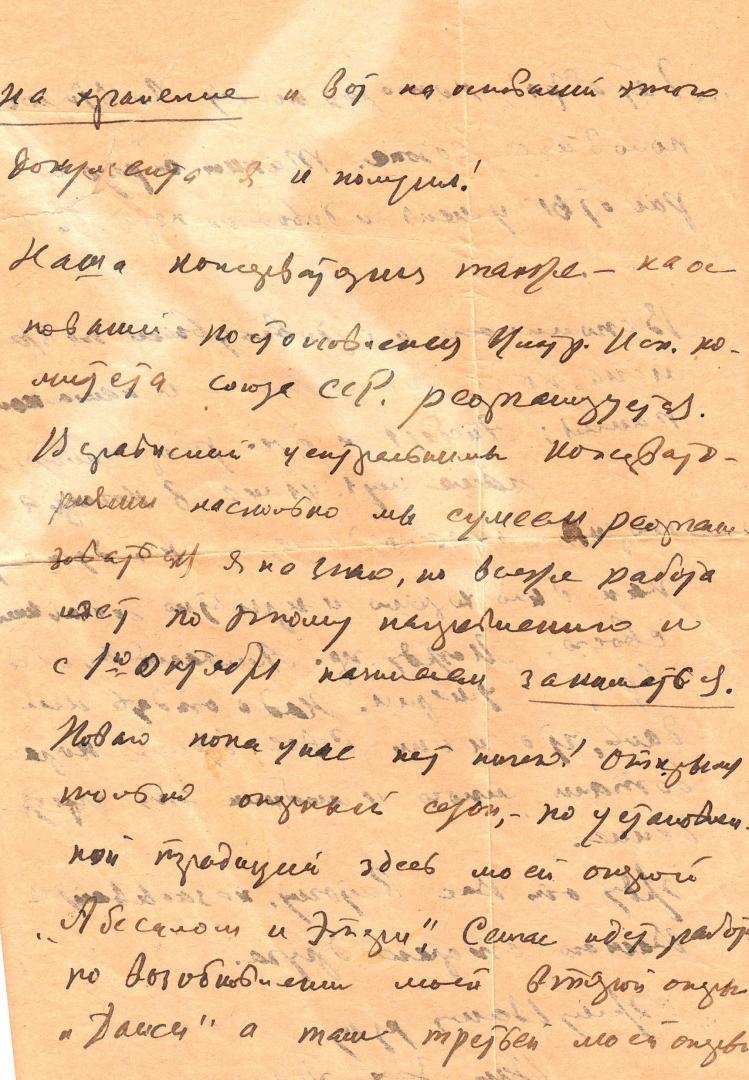 на хранение и вот на основании этого
документа я и получил!
Наша консерватория также – на ос
новании постановления Центр. Исп. ко-
митета союза ССР. реорганизуется.
В  центральными консервато-
риями насколько мы сумеем реорганизоваться
я не знаю, но всеже работа
идет по этому направлению и
с 1го Октября начинаем заниматься.
Новаго пока у нас нет ничего! Открыли
только оперный сезон, – по установлен-
ной традиции здесь моей оперой
„Абесалом и Этери", Сейчас идет работа
по возобновлении моей второй оперы
„Даиси" а там третьей моей оперы